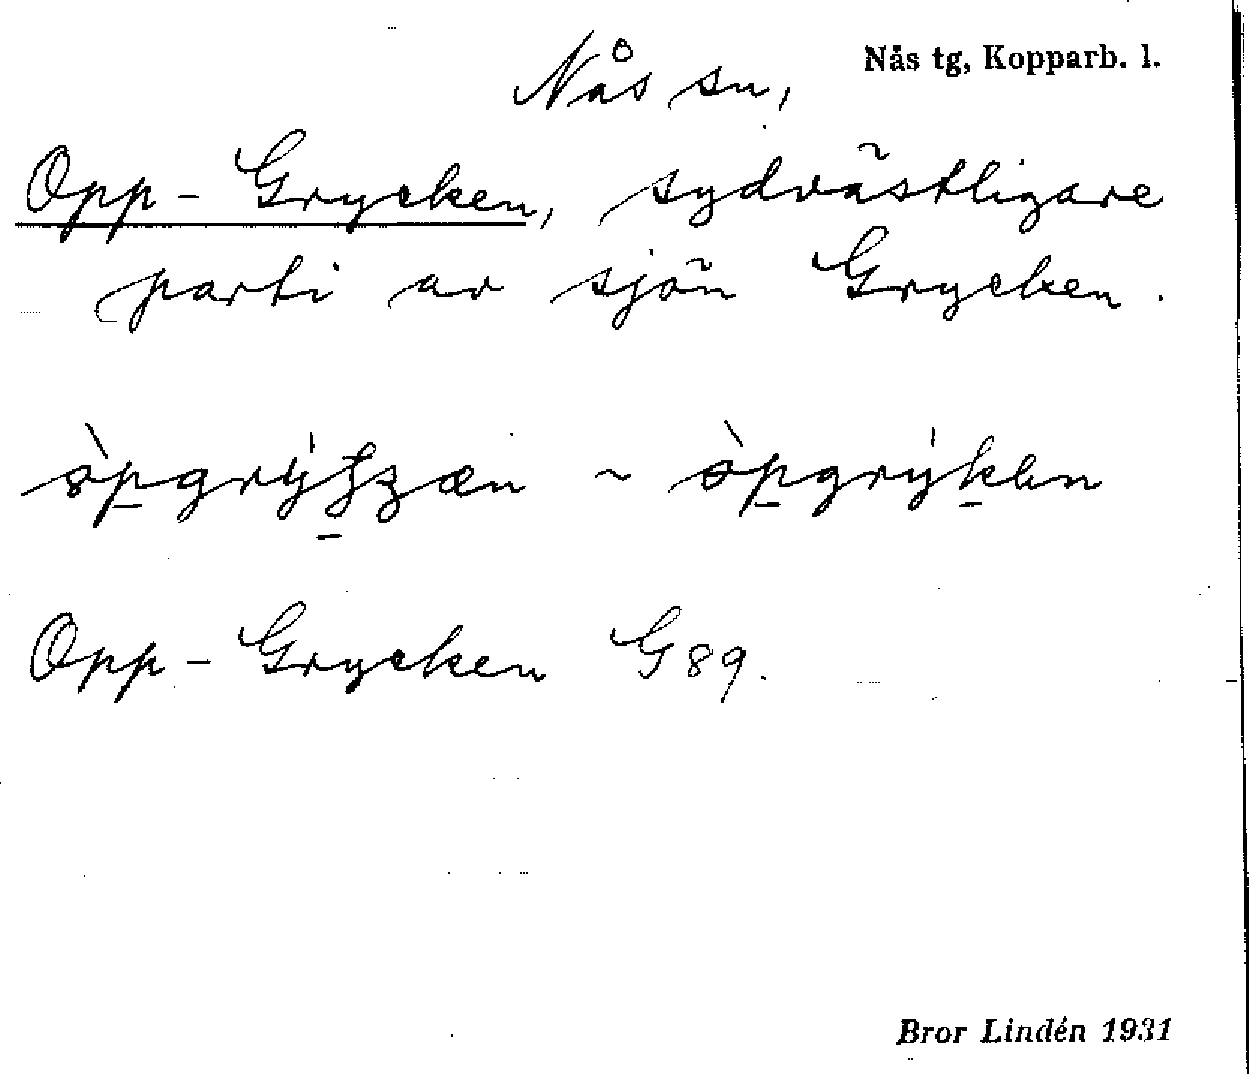 Nås sn, Nås tg, Kopparb. l.
Opp-Grycken, sydvästligare
parti av sjön Grycken.
Opp-Grycken G 89.
Bror Lindén 1931